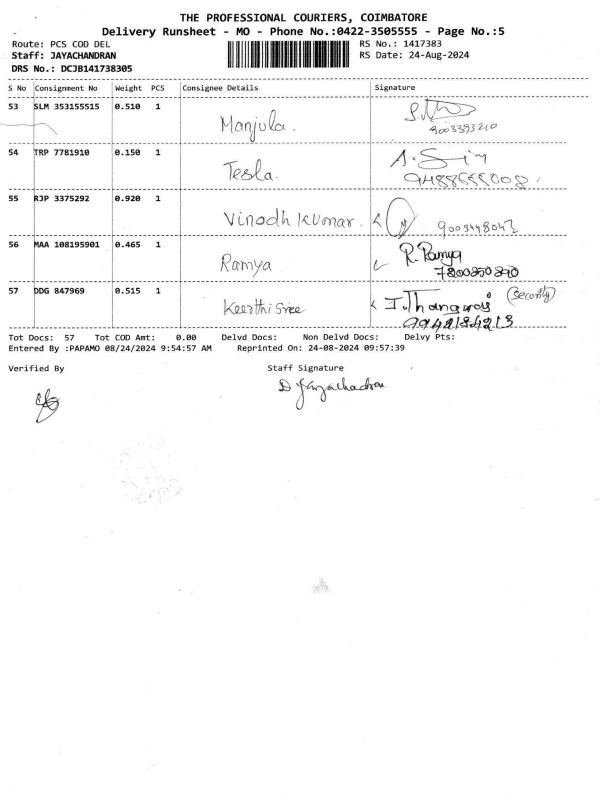 THE PROFESSIONAL COURIERS, COIMBATORE
Delivery Runsheet - MO - Phone No.:0422-3505555 - Page No.:5
Route: PCS COD DEL RS No.: 1417383
Staff: JAYACHANDRAN RS Date: 24-Aug-2024
DRS No.: DCJB141738305
S No Consignment No Weight PCS Consignee Details Signature
53 SLM 353155515 0.510 1 Manjula.
9003393210
54 TRP 7781910 0.150 1 Tesla.
55 RJP 3375292 0.920 1 Vinodh Kumar.
56 MAA 108195901 0.465 1 Ramya R. Ramya
57 DDG 847969 0.515 1 Keerthi Sree I. Thangaraj (Security)
9942184213
Tot Docs: 57 Tot COD Amt: 0.00 Delvd Docs: Non Delvd Docs: Delvy Pts:
Entered By :PAPAMO 08/24/2024 9:54:57 AM Reprinted On: 24-08-2024 09:57:39
Verified By Staff Signature
D Jayachadran